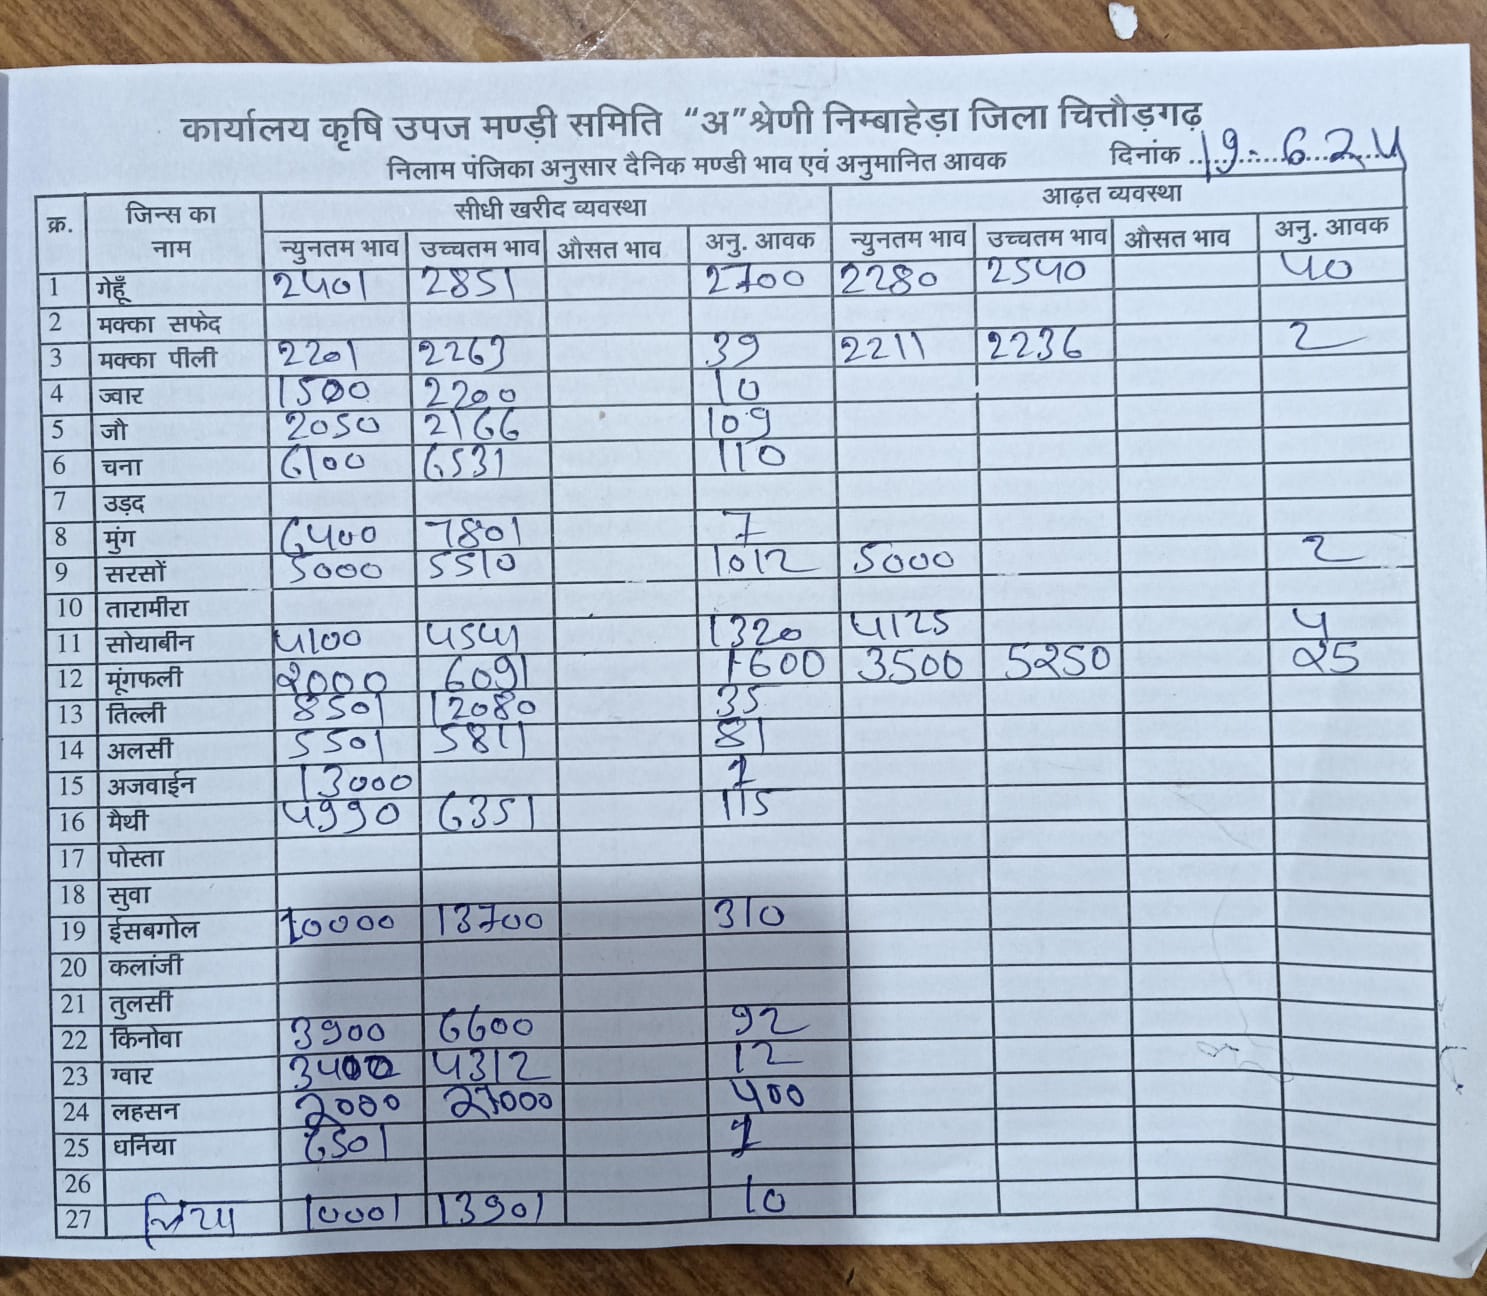 कार्यालय कृषि उपज मण्डी समिति "अ" श्रेणी निम्बाहेड़ा जिला चित्तौड़गढ़
निलाम पंजिका अनुसार दैनिक मण्डी भाव एवं अनुमानित आवक दिनांक 19-6.24
क्र. जिन्स का नाम सीधी खरीद व्यवस्था आढ़त व्यवस्था
न्युनतम भाव उच्चतम भाव औसत भाव अनु. आवक न्युनतम भाव उच्चतम भाव औसत भाव अनु. आवक
1 गेहूँ 2401 2851 2700 2280 2540 40
2 मक्का सफेद
3 मक्का पीली 2201 2263 39 2211 2236 2
4 ज्वार 1500 2200 10
5 जौ 2050 2166 109
6 चना 6100 6531 110
7 उड़द
8 मुंग 6400 7801 7
9 सरसों 5000 5510 1012 5000 2
10 तारामीरा
11 सोयाबीन 4100 4541 1320 4125 4
12 मूंगफली 2000 6091 1600 3500 5250 25
13 तिल्ली 8501 12080 35
14 अलसी 5501 5811 81
15 अजवाईन 13000 1
16 मैथी 4990 6351 115
17 पोस्ता
18 सुवा
19 ईसबगोल 10000 13700 310
20 कलांजी
21 तुलसी
22 किनोवा 3900 6600 92
23 ग्वार 3400 4312 12
24 लहसन 2000 27000 400
25 धनिया 6501 1
26
27 10001 13901 10